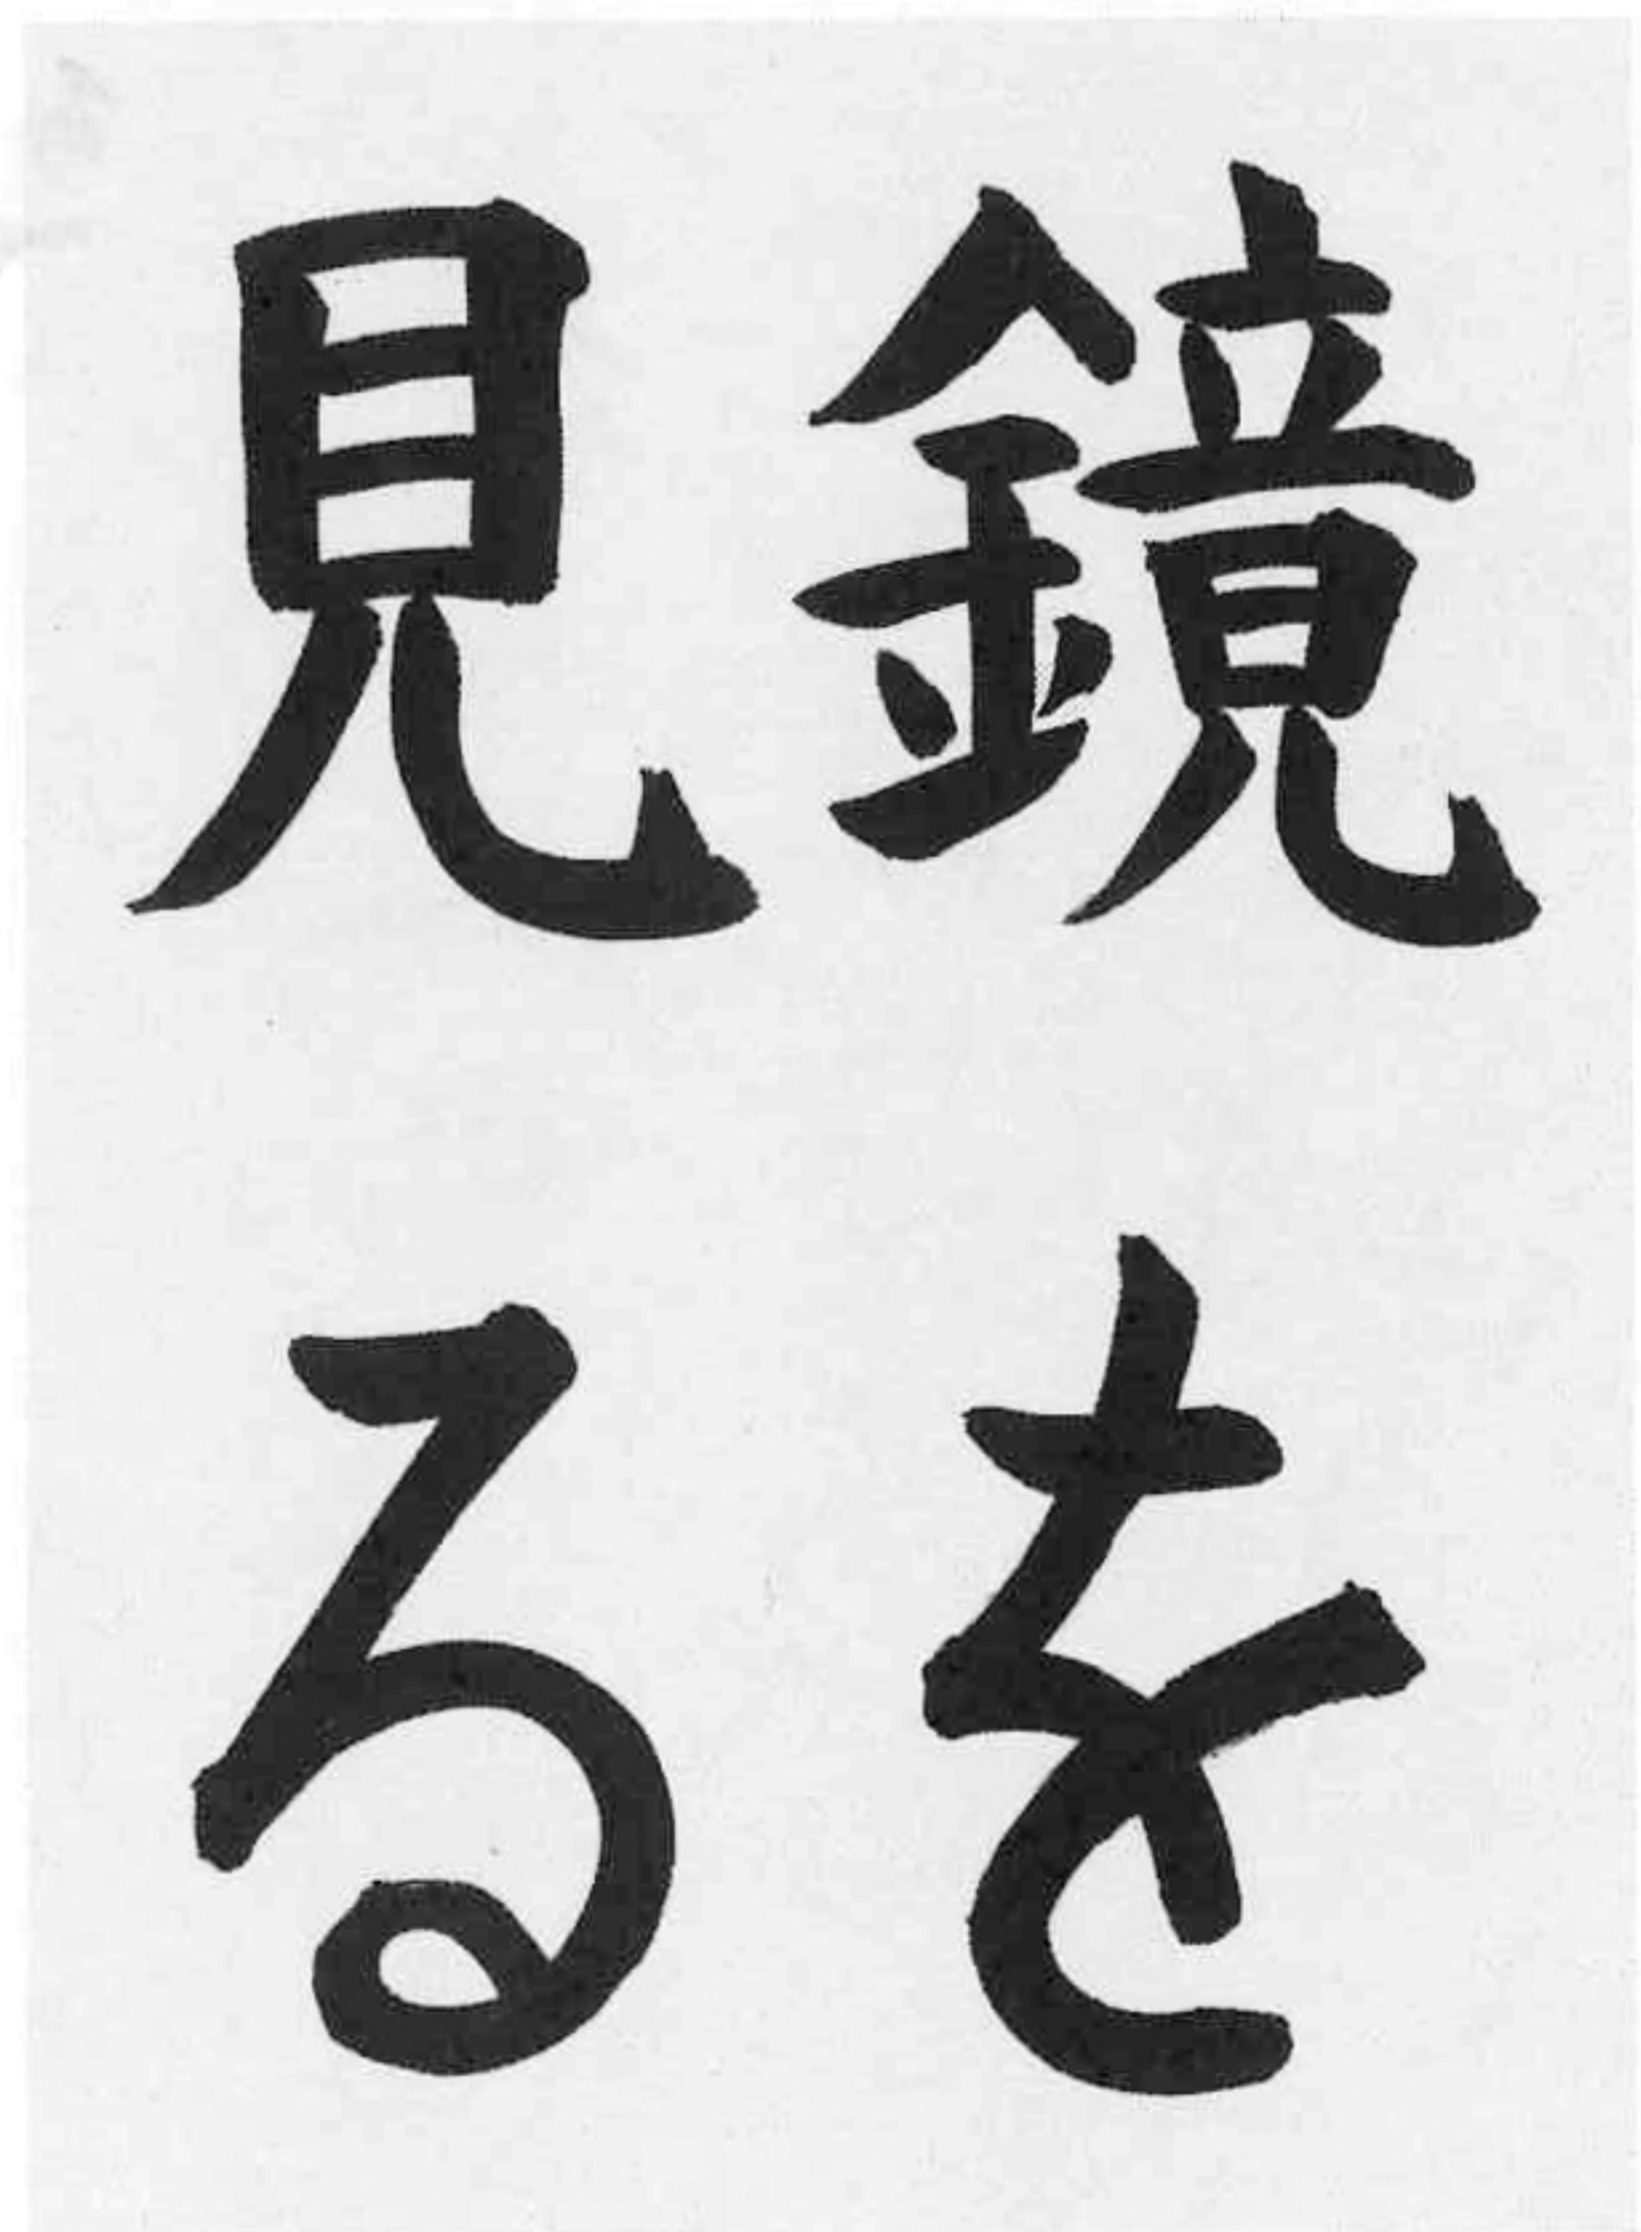 鏡を
見る